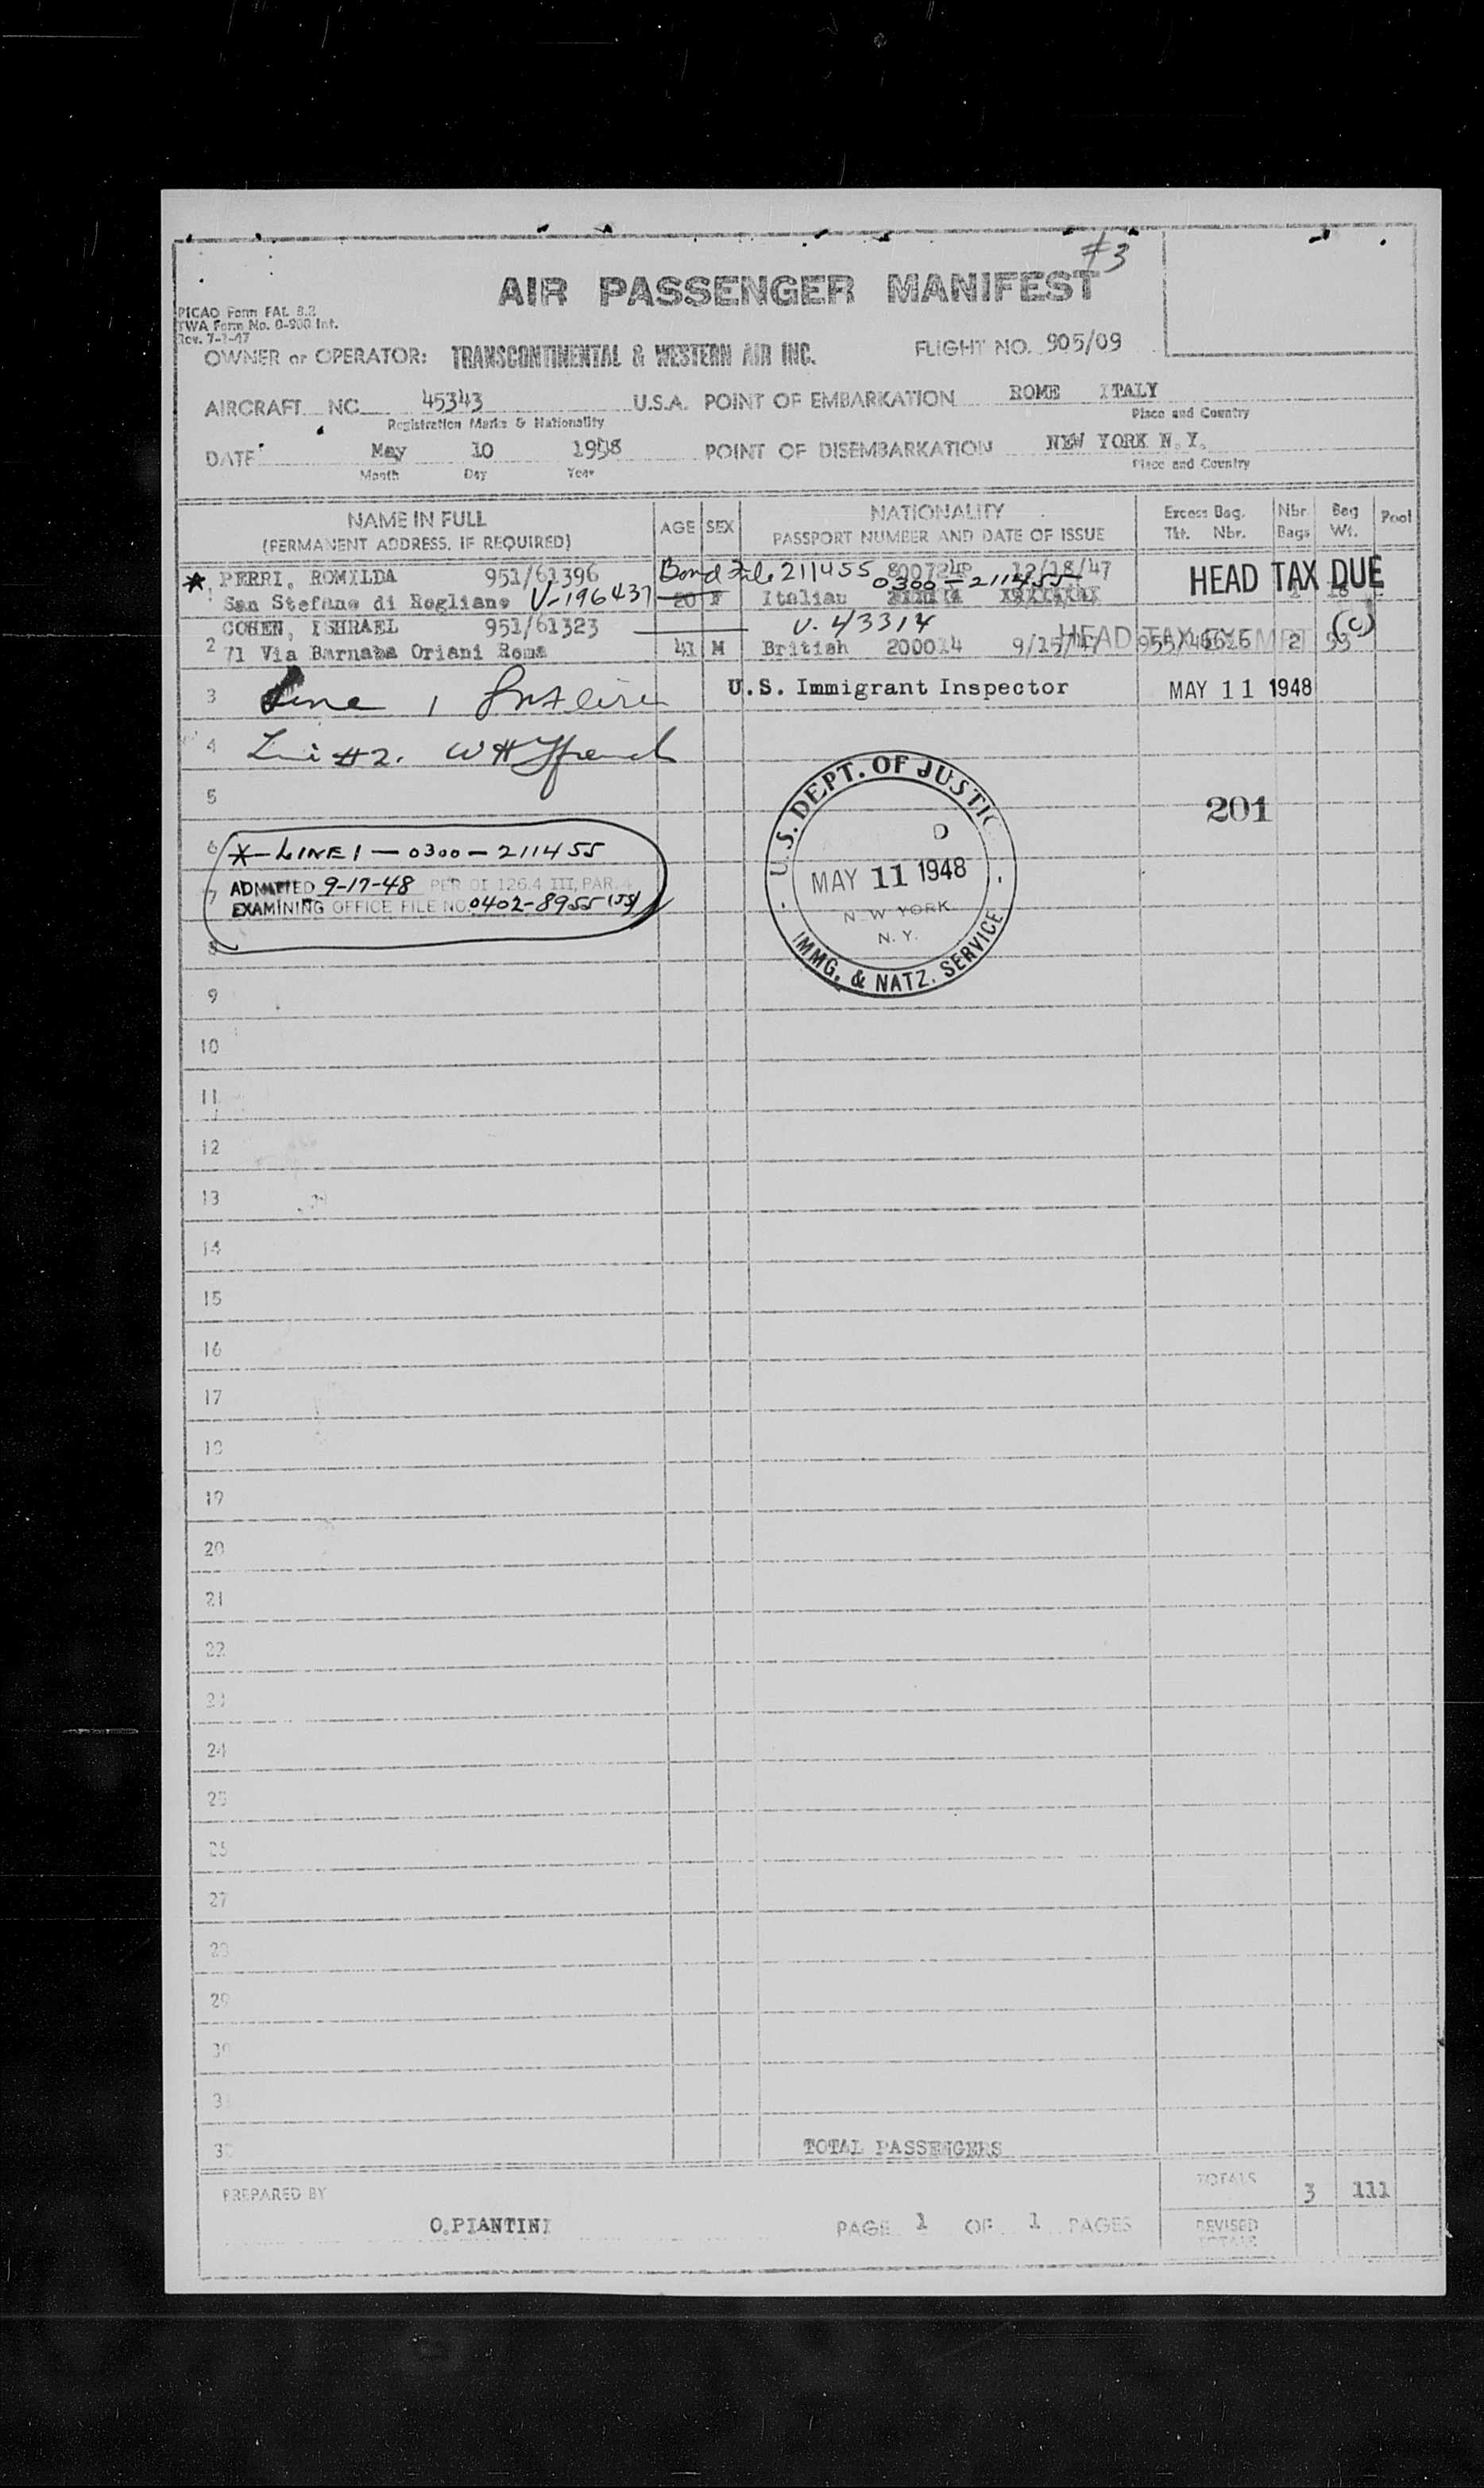 #3
AIR PASSENGER MANIFEST
PICAO Form FAL 8.2
TWA Form No. O-900 Int.
Rev. 7-1-47
OWNER or OPERATOR: TRANSCONTINENTAL & WESTERN AIR INC. FLIGHT NO. 905/09
AIRCRAFT NC 45343 U.S.A. POINT OF EMBARKATION ROME ITALY
Registration Marks & Nationality Place and Country
DATE May 10 1948 POINT OF DISEMBARKATION NEW YORK N.Y.
Month Day Year Place and Country
NAME IN FULL AGE SEX NATIONALITY Excess Bag. Nbr. Bag Pool
(PERMANENT ADDRESS, IF REQUIRED) PASSPORT NUMBER AND DATE OF ISSUE Tkt. Nbr. Bags Wt.
* PERRI, ROMILDA 951/61396 Bond File 211455 12/18/47 HEAD TAX DUE
0300-211455
1 San Stefano di Rogliano V-196437 20 F Italian
COHEN, ISHRAEL 951/61323 V. 43314 (C)
HEAD TAX EXEMPT
2 71 Via Barnaba Oriani Roma 41 M British 200014 9/15/47 2
3 Line 1 U.S. Immigrant Inspector MAY 11 1948
4 #2. W H
5 201
6 *-LINE 1-0300-211455
7 ADMITTED 9-17-48 PER OI 126.4 III, PAR.
EXAMINING OFFICE FILE NO. 0402-8955
8
U.S. DEPT. OF JUSTIC
MAY 11 1948
N. W YORK
N. Y.
IMMG. & NATZ. SERVICE
9
10
11
12
13
14
15
16
17
18
19
20
21
22
23
24
25
26
27
28
29
30
3
3
TOTAL PASSENGERS
PREPARED BY TOTALS 3 111
O.PIANTINI PAGE 1 OF 1 PAGES REVISED
TOTALS